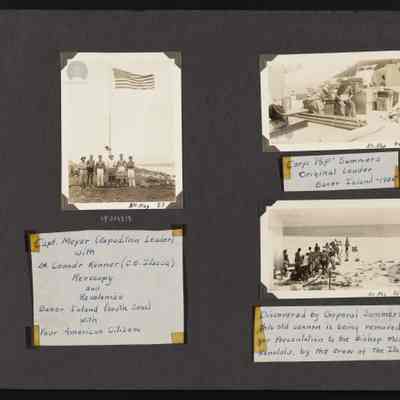 Capt. Meyer (Expedition Leader)
with
Lt. Comdr Kenner (C.O. Itasca)
Reoccupy
and
Recolonize
Baker Island (South Seas)
with
Four American Citizen
Corp'l "Pop" Summers
Original Leader
Baker Island -
Discovered by Corporal Summers
this old cannon is being removed
for Presentation to the Bishop
Honolulu, by the crew of the